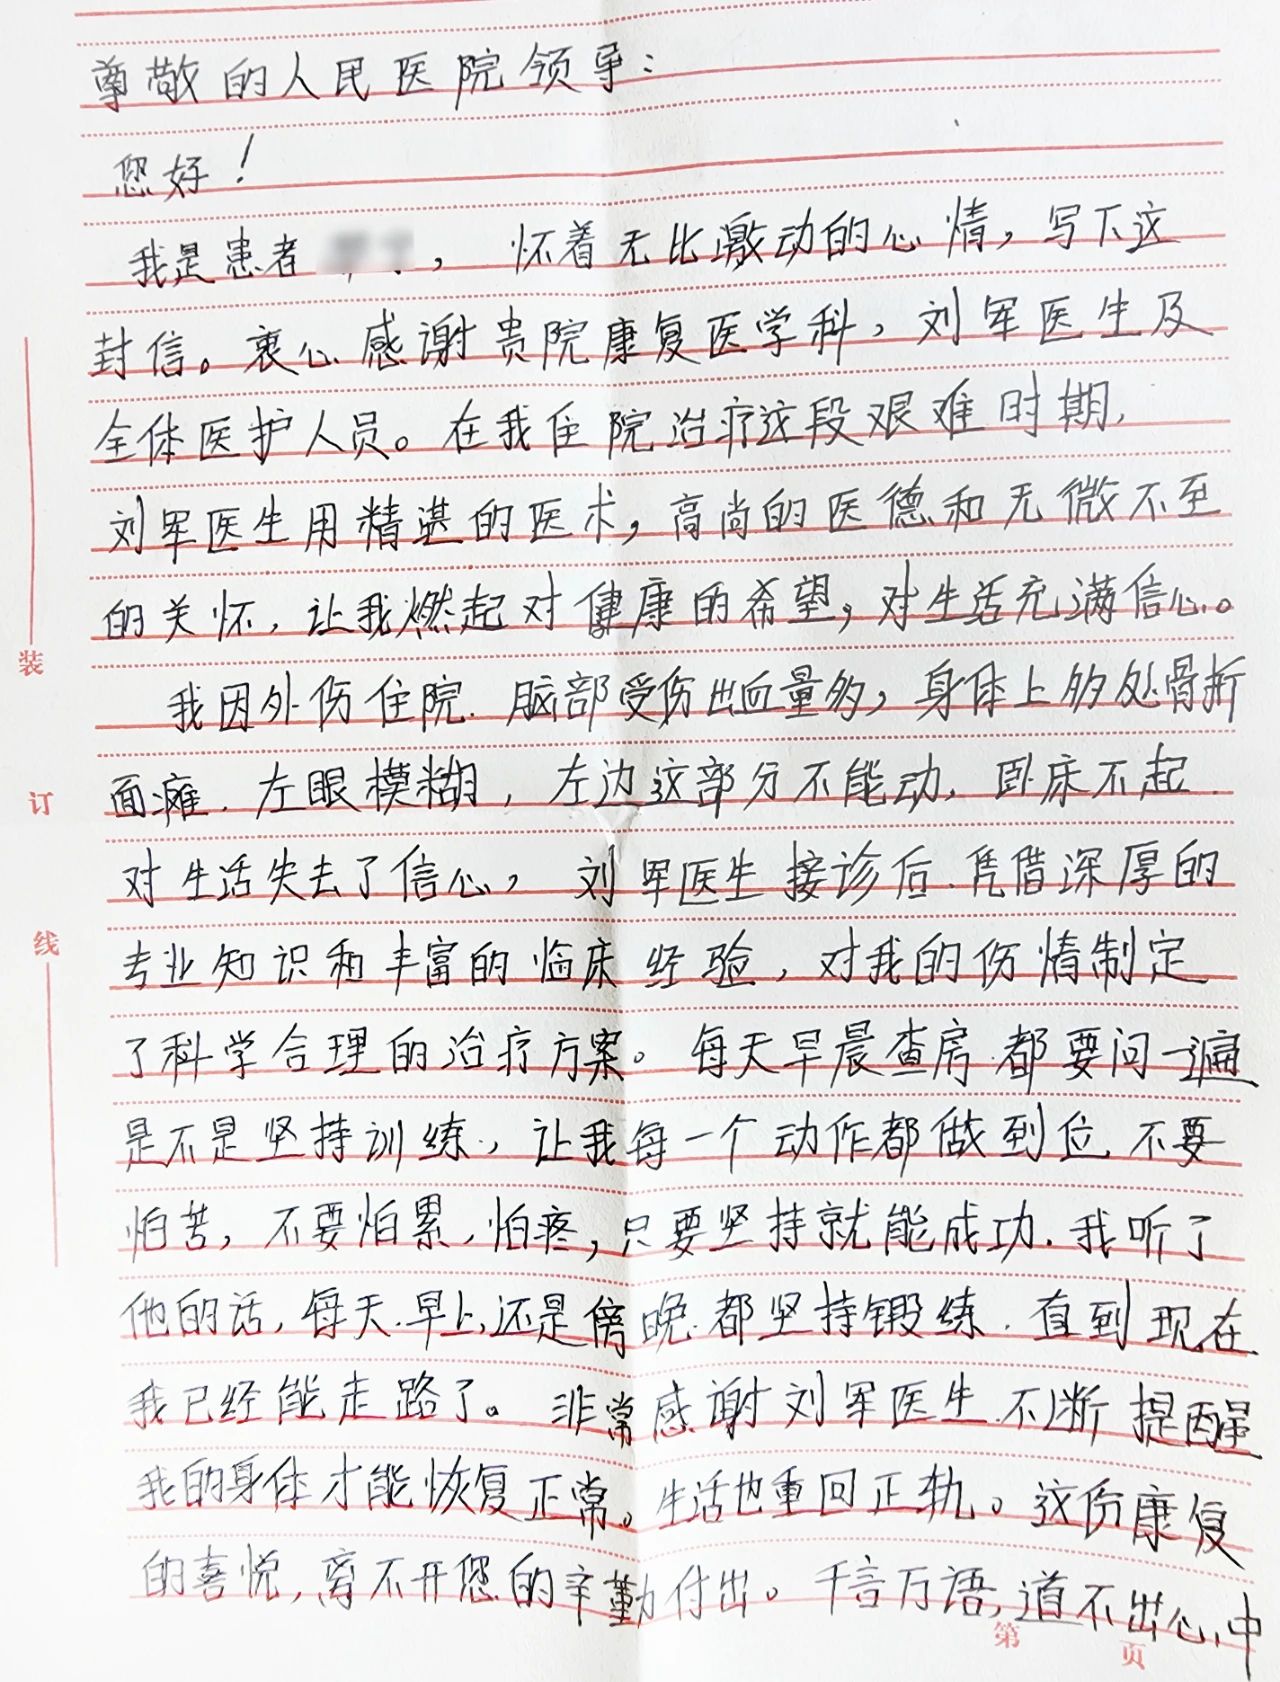 尊敬的人民医院领导：
您好！
我是患者 ， 怀着无比激动的心情，写下这
封信。衷心感谢贵院康复医学科，刘军医生及
全体医护人员。在我住院治疗这段艰难时期，
刘军医生用精湛的医术，高尚的医德和无微不至
的关怀，让我燃起对健康的希望，对生活充满信心。
我因外伤住院.脑部受伤出血量多，身体上多处骨折
面瘫.左眼模糊，左边这部分不能动.卧床不起.
对生活失去了信心，刘军医生接诊后.凭借深厚的
专业知识和丰富的临床经验，对我的伤情制定
了科学合理的治疗方案。每天早晨查房.都要问一遍
是不是坚持训练.，让我每一个动作都做到位.不要
怕苦，不要怕累.怕疼，只要坚持就能成功.我听了
他的话，每天.早上，还是傍晚.都坚持锻练.直到现在
我已经能走路了。非常感谢刘军医生.不断提醒
我的身体才能恢复正常。生活也重回正轨。这份康复
的喜悦，离不开您的辛勤付出。千言万语，道不出心中
装
订
线
第 页